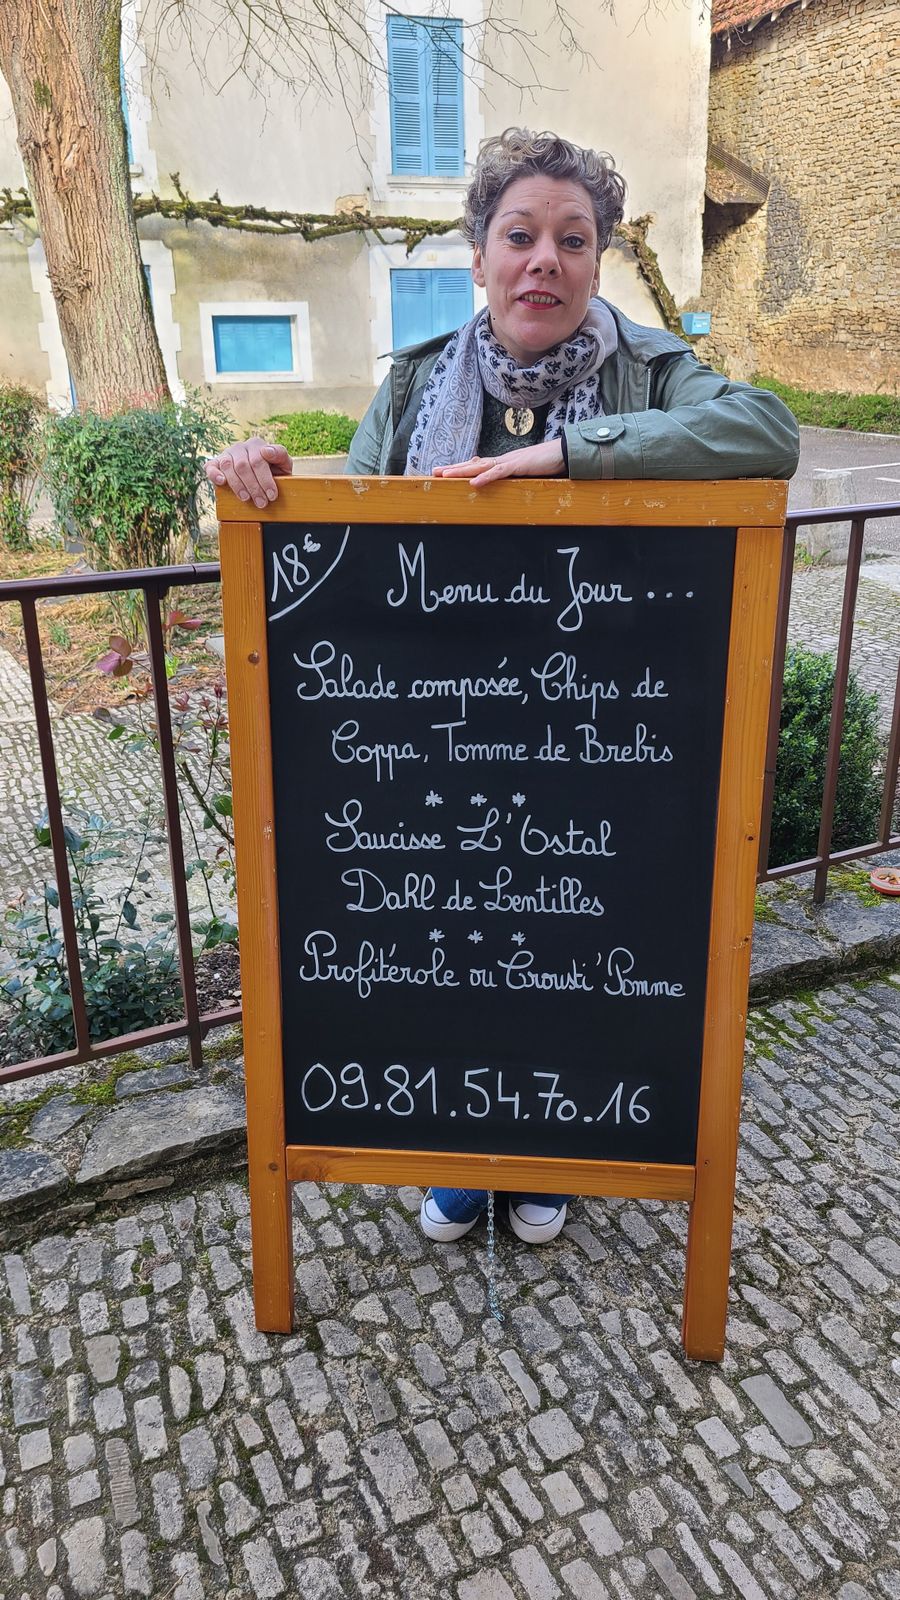 18€
Menu du Jour ...
Salade composée, Chips de
Coppa, Tomme de Brebis
* * *
Saucisse L'Ostal
Dahl de Lentilles
* * *
Profitérole ou Crousti'Pomme
09.81.54.70.16